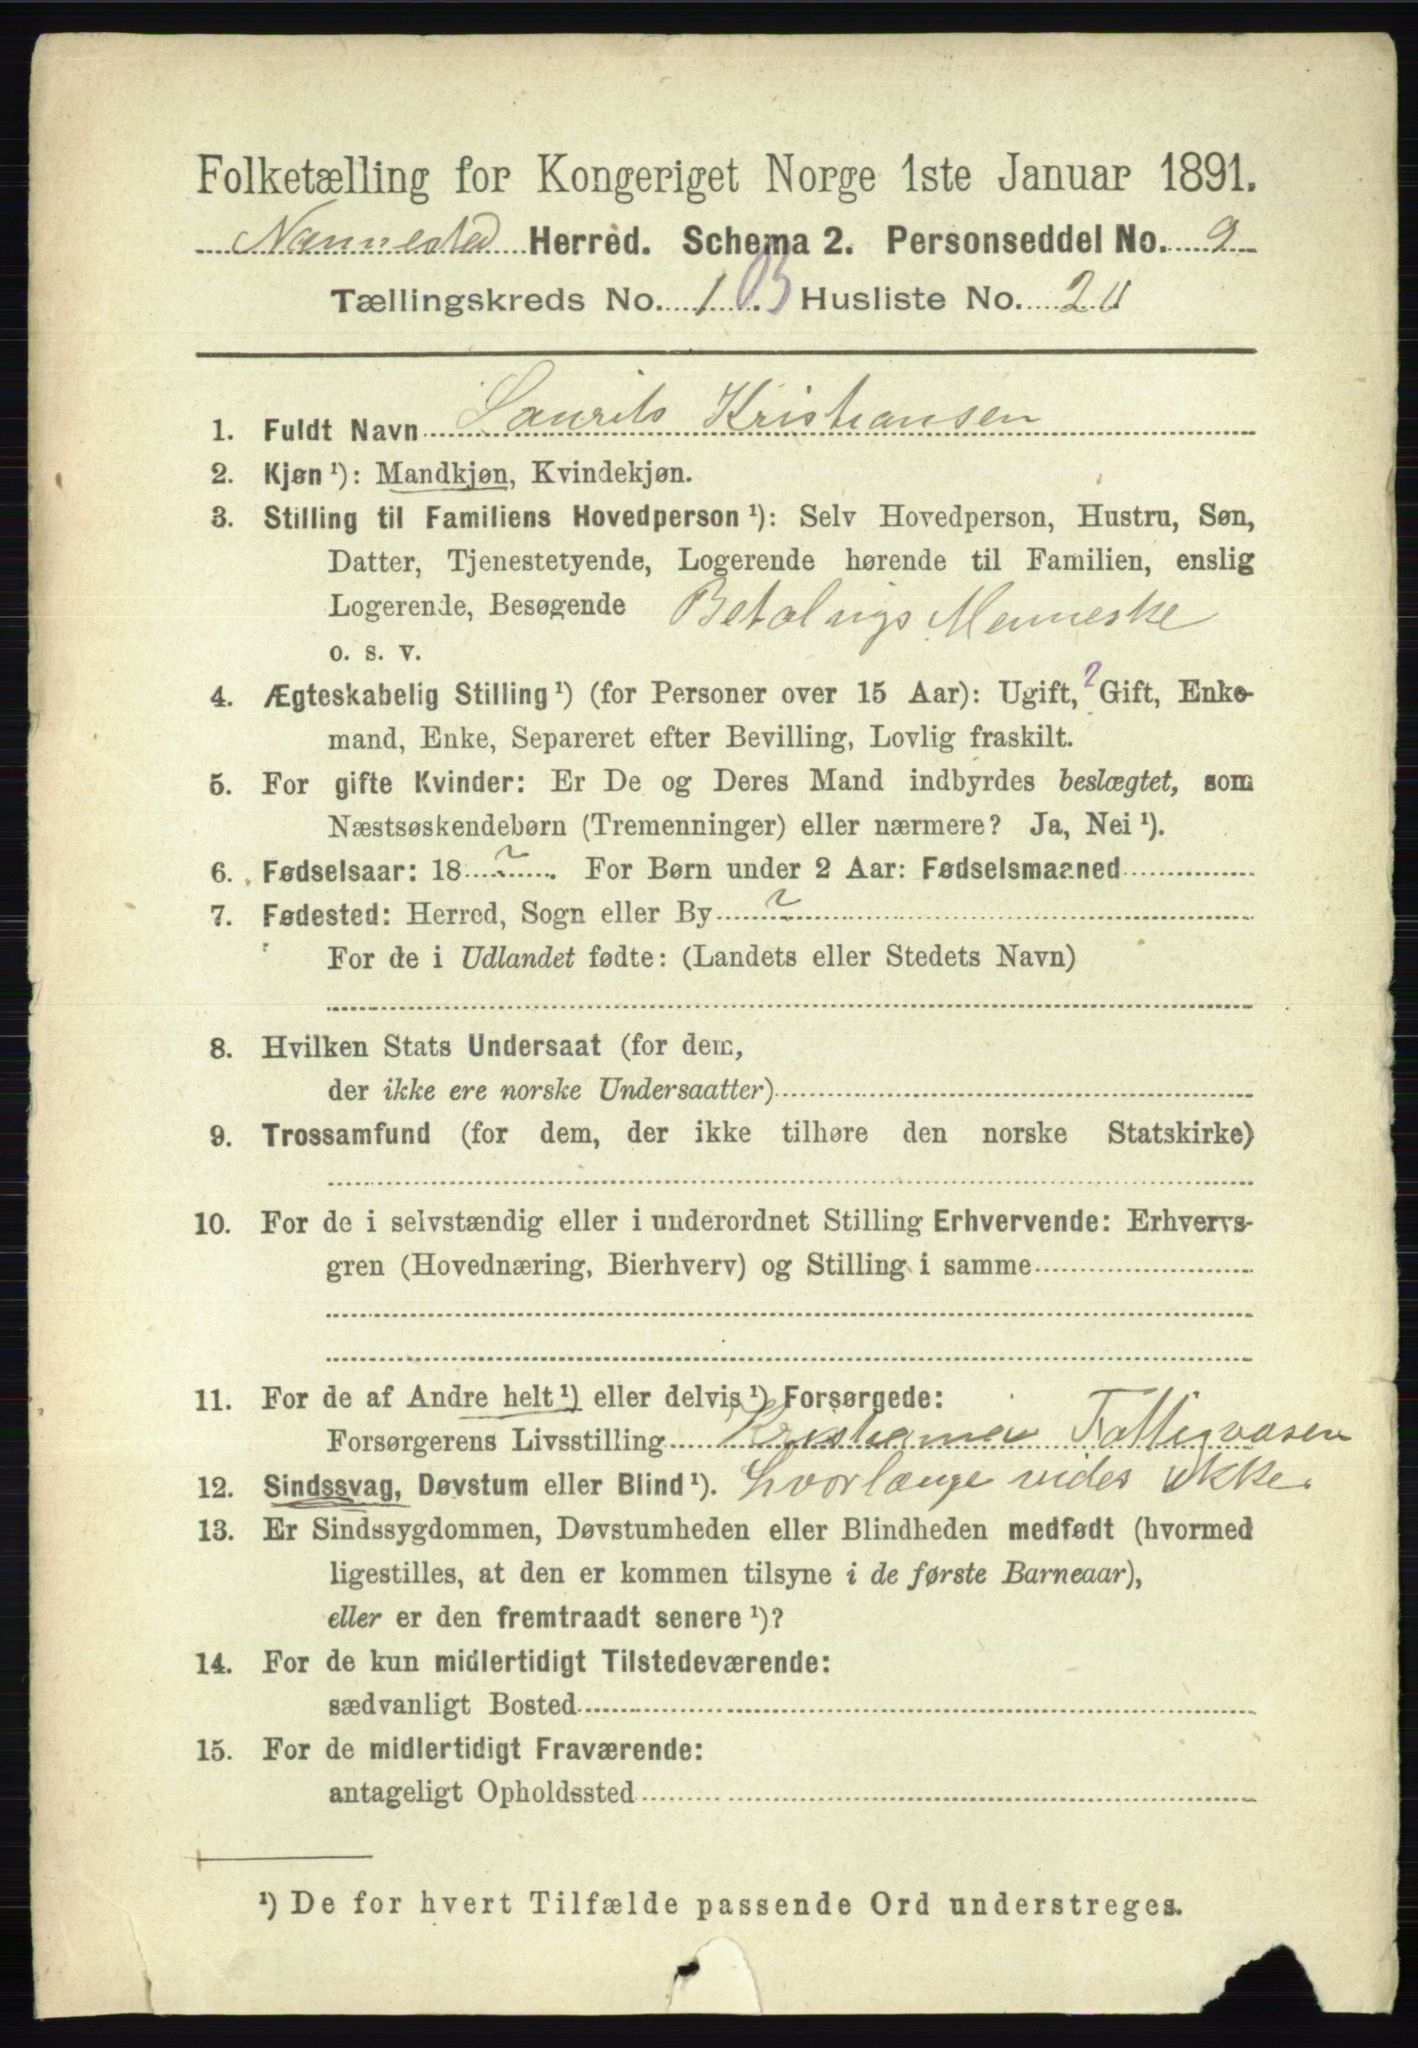 Folketælling for Kongeriget Norge 1ste Januar 1891.
Nannestad Herred. Schema 2. Personseddel No. 9
Tællingskreds No. 1 B Husliste No. 20
1. Fuldt Navn Laurits Kristiansen
2. Kjøn ¹): Mandkjøn, Kvindekjøn.
3. Stilling til Familiens Hovedperson ¹): Selv Hovedperson, Hustru, Søn,
Datter, Tjenestetyende, Logerende hørende til Familien, enslig
Logerende, Besøgende Betalings Menneske
o. s. v.
4. Ægteskabelig Stilling ¹) (for Personer over 15 Aar): Ugift, ? Gift, Enke-
mand, Enke, Separeret efter Bevilling, Lovlig fraskilt.
5. For gifte Kvinder: Er De og Deres Mand indbyrdes beslægtet, som
Næstsøskendebørn (Tremenninger) eller nærmere? Ja, Nei ¹).
6. Fødselsaar: 18 ? . For Børn under 2 Aar: Fødselsmaaned
7. Fødested: Herred, Sogn eller By ?
For de i Udlandet fødte: (Landets eller Stedets Navn)
8. Hvilken Stats Undersaat (for dem,
der ikke ere norske Undersaatter)
9. Trossamfund (for dem, der ikke tilhøre den norske Statskirke)
10. For de i selvstændig eller i underordnet Stilling Erhvervende: Erhvervs-
gren (Hovednæring, Bierhverv) og Stilling i samme
11. For de af Andre helt ¹) eller delvis ¹) Forsørgede:
Forsørgerens Livsstilling Kristiania Fattigvæsen
12. Sindssvag, Døvstum eller Blind ¹). hvorlænge vides ikke.
13. Er Sindssygdommen, Døvstumheden eller Blindheden medfødt (hvormed
ligestilles, at den er kommen tilsyne i de første Barneaar),
eller er den fremtraadt senere ¹)?
14. For de kun midlertidigt Tilstedeværende:
sædvanligt Bosted
15. For de midlertidigt Fraværende:
antageligt Opholdssted
¹) De for hvert Tilfælde passende Ord understreges.